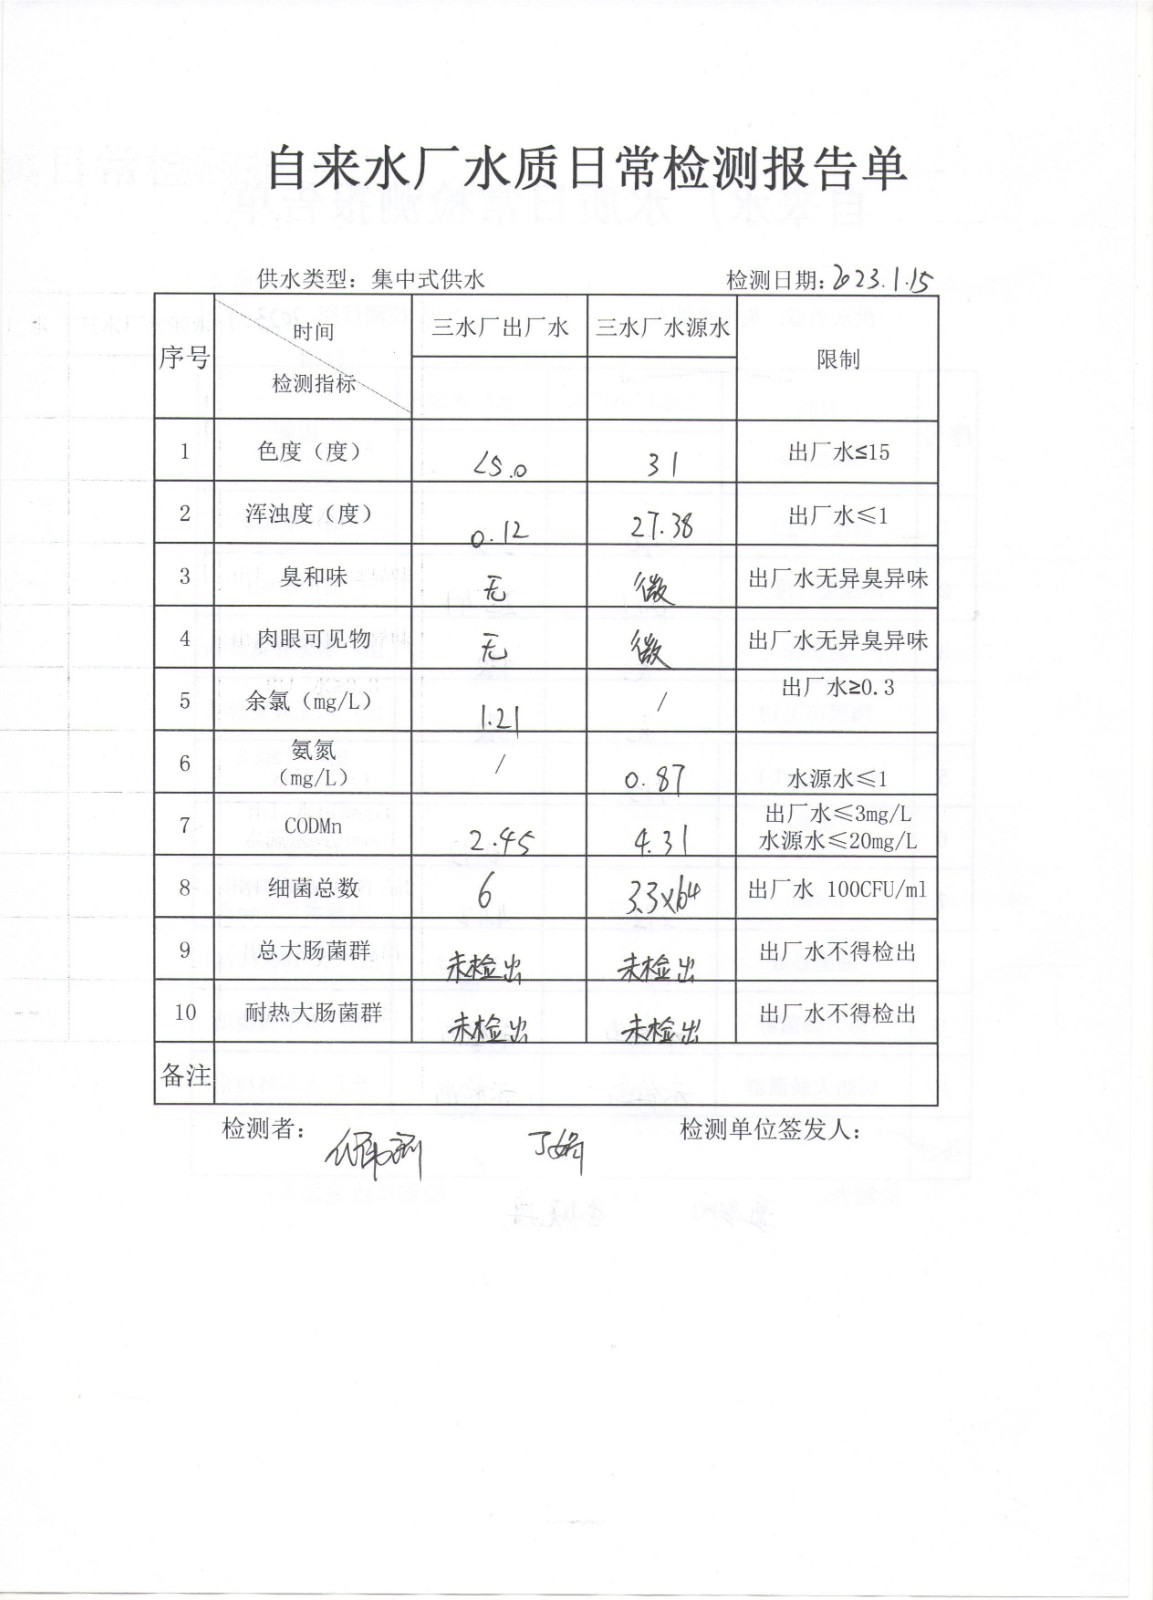 自来水厂水质日常检测报告单
供水类型：集中式供水 检测日期：2023.1.15
序号 时间 检测指标 三水厂出厂水 三水厂水源水 限制
1 色度（度） <5.0 31 出厂水≤15
2 浑浊度（度） 0.12 27.38 出厂水≤1
3 臭和味 无 微 出厂水无异臭异味
4 肉眼可见物 无 微 出厂水无异臭异味
5 余氯（mg/L） 1.21 / 出厂水≥0.3
6 氨氮（mg/L） / 0.87 水源水≤1
7 CODMn 2.45 4.31 出厂水≤3mg/L 水源水≤20mg/L
8 细菌总数 6 出厂水 100CFU/ml
9 总大肠菌群 未检出 未检出 出厂水不得检出
10 耐热大肠菌群 未检出 未检出 出厂水不得检出
备注
检测者： 检测单位签发人：